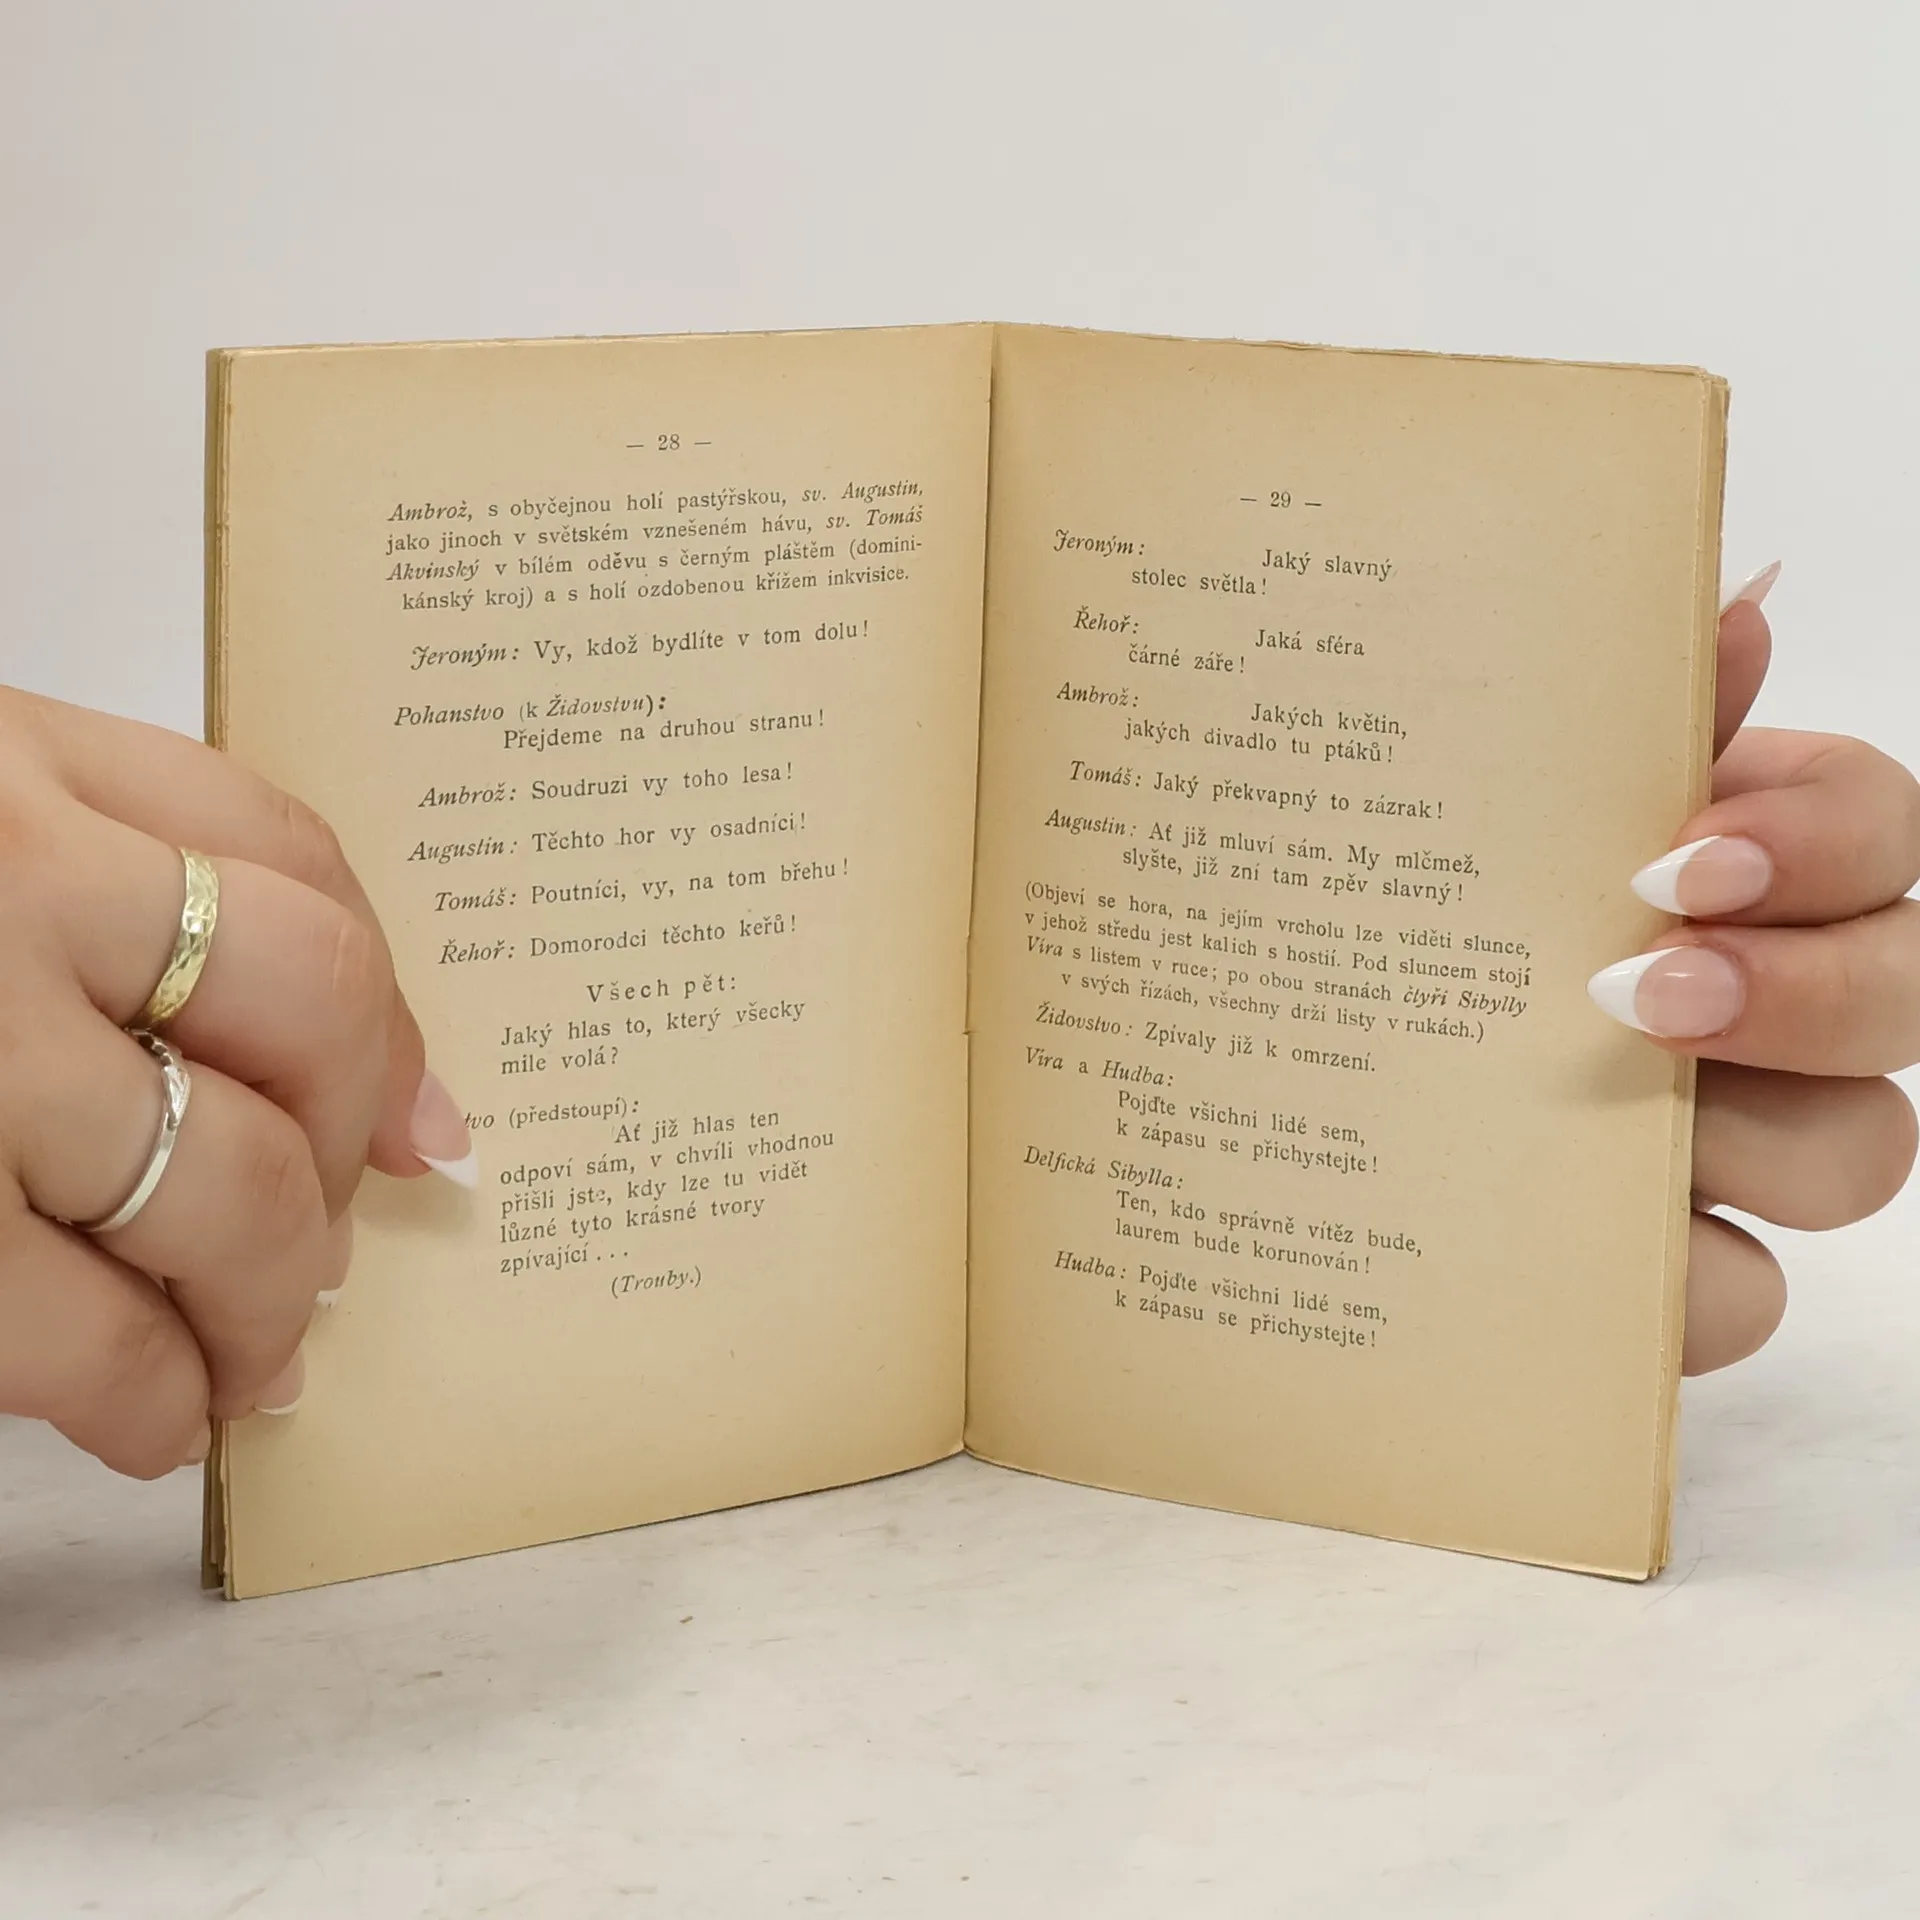 — 28 —
Ambrož, s obyčejnou holí pastýřskou, sv. Augustin,
jako jinoch v světském vznešeném hávu, sv. Tomáš
Akvinský v bílém oděvu s černým pláštěm (domini-
kánský kroj) a s holí ozdobenou křížem inkvisice.
Jeroným: Vy, kdož bydlíte v tom dolu!
Pohanstvo (k Židovstvu):
Přejdeme na druhou stranu!
Ambrož: Soudruzi vy toho lesa!
Augustin: Těchto hor vy osadníci!
Tomáš: Poutníci, vy, na tom břehu!
Řehoř: Domorodci těchto keřů!
Všech pět:
Jaký hlas to, který všecky
mile volá?
tvo (předstoupí):
Ať již hlas ten
odpoví sám, v chvíli vhodnou
přišli jste, kdy lze tu vidět
lůzné tyto krásné tvory
zpívající...
(Trouby.)
— 29 —
Jeroným: Jaký slavný
stolec světla!
Řehoř: Jaká sféra
čárné záře!
Ambrož: Jakých květin,
jakých divadlo tu ptáků!
Tomáš: Jaký překvapný to zázrak!
Augustin: Ať již mluví sám. My mlčmež,
slyšte, již zní tam zpěv slavný!
(Objeví se hora, na jejím vrcholu lze viděti slunce,
v jehož středu jest kalich s hostií. Pod sluncem stojí
Víra s listem v ruce; po obou stranách čtyři Sibylly
v svých řízách, všechny drží listy v rukách.)
Židovstvo: Zpívaly již k omrzení.
Víra a Hudba:
Pojďte všichni lidé sem,
k zápasu se přichystejte!
Delfická Sibylla:
Ten, kdo správně vítěz bude,
laurem bude korunován!
Hudba: Pojďte všichni lidé sem,
k zápasu se přichystejte!